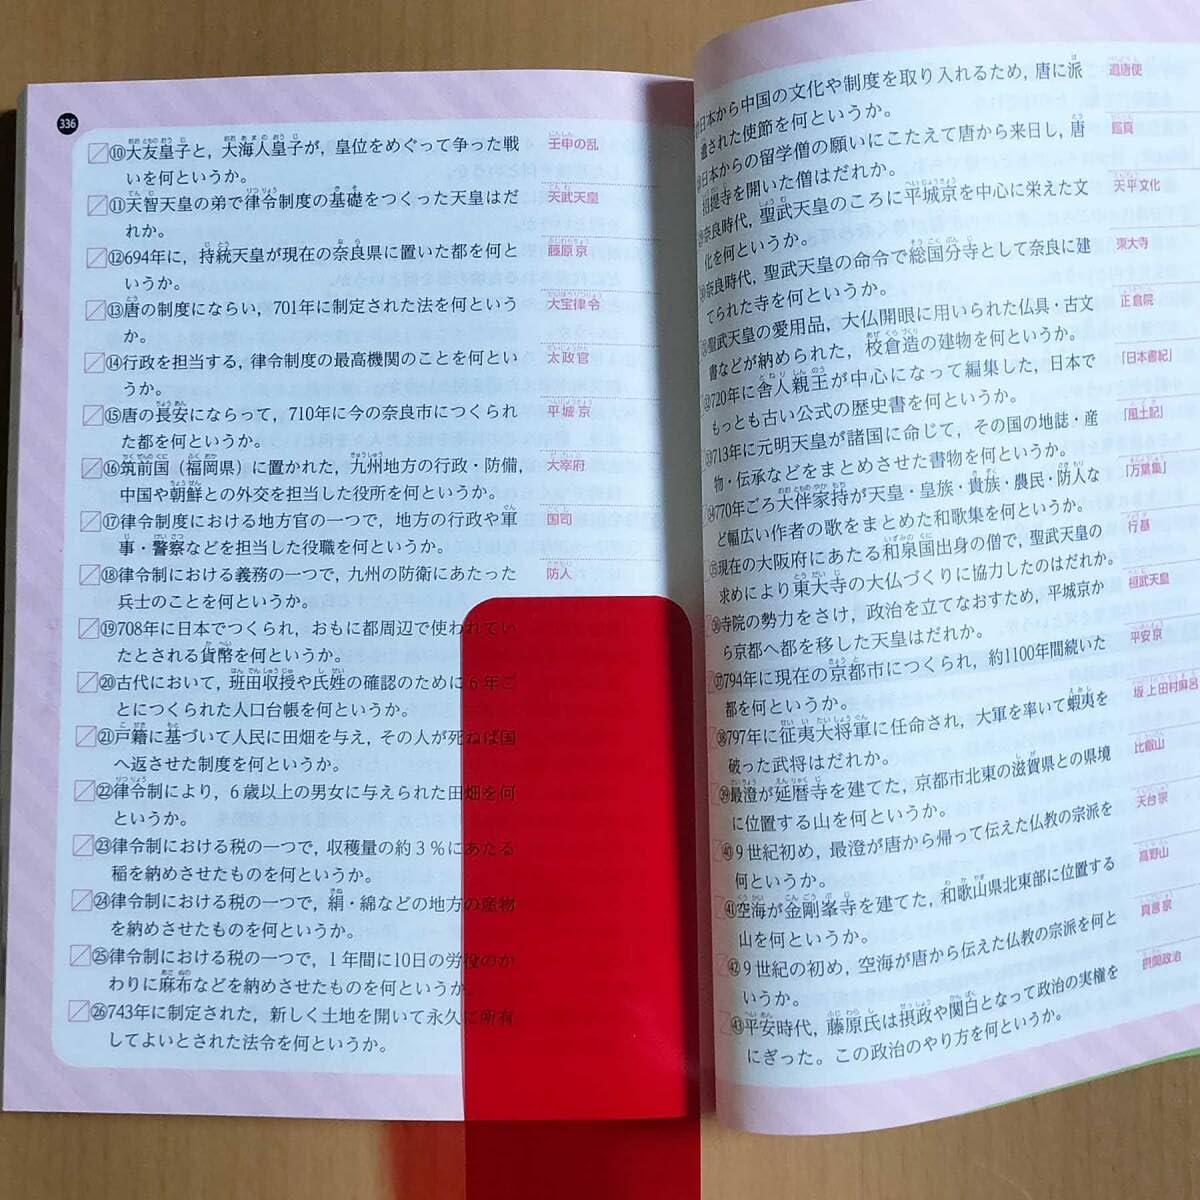 336
⑩大友皇子と，大海人皇子が，皇位をめぐって争った戦
いを何というか。
壬申の乱
⑪天智天皇の弟で律令制度の基礎をつくった天皇はだ
れか。
天武天皇
⑫694年に，持統天皇が現在の奈良県に置いた都を何と
いうか。
藤原京
⑬唐の制度にならい，701年に制定された法を何という
か。
大宝律令
⑭行政を担当する，律令制度の最高機関のことを何とい
うか。
太政官
⑮唐の長安にならって，710年に今の奈良市につくられ
た都を何というか。
平城京
⑯筑前国（福岡県）に置かれた，九州地方の行政・防備，
中国や朝鮮との外交を担当した役所を何というか。
大宰府
⑰律令制度における地方官の一つで，地方の行政や軍
事・警察などを担当した役職を何というか。
国司
⑱律令制における義務の一つで，九州の防衛にあたった
兵士のことを何というか。
防人
⑲708年に日本でつくられ，おもに都周辺で使われてい
たとされる貨幣を何というか。
⑳古代において，班田収授や氏姓の確認のために6年ご
とにつくられた人口台帳を何というか。
㉑戸籍に基づいて人民に田畑を与え，その人が死ねば国
へ返させた制度を何というか。
㉒律令制により，6歳以上の男女に与えられた田畑を何
というか。
㉓律令制における税の一つで，収穫量の約3％にあたる
稲を納めさせたものを何というか。
㉔律令制における税の一つで，絹・綿などの地方の産物
を納めさせたものを何というか。
㉕律令制における税の一つで，1年間に10日の労役のか
わりに麻布などを納めさせたものを何というか。
㉖743年に制定された，新しく土地を開いて永久に所有
してよいとされた法令を何というか。
日本から中国の文化や制度を取り入れるため，唐に派
遣された使節を何というか。
遣唐使
日本からの留学僧の願いにこたえて唐から来日し，唐
招提寺を開いた僧はだれか。
鑑真
奈良時代，聖武天皇のころに平城京を中心に栄えた文
化を何というか。
天平文化
奈良時代，聖武天皇の命令で総国分寺として奈良に建
てられた寺を何というか。
東大寺
聖武天皇の愛用品，大仏開眼に用いられた仏具・古文
書などが納められた，校倉造の建物を何というか。
正倉院
720年に舎人親王が中心になって編集した，日本で
もっとも古い公式の歴史書を何というか。
「日本書紀」
713年に元明天皇が諸国に命じて，その国の地誌・産
物・伝承などをまとめさせた書物を何というか。
「風土記」
770年ごろ大伴家持が天皇・皇族・貴族・農民・防人な
ど幅広い作者の歌をまとめた和歌集を何というか。
「万葉集」
現在の大阪府にあたる和泉国出身の僧で，聖武天皇の
求めにより東大寺の大仏づくりに協力したのはだれか。
行基
㊱寺院の勢力をさけ，政治を立てなおすため，平城京か
ら京都へ都を移した天皇はだれか。
桓武天皇
㊲794年に現在の京都市につくられ，約1100年間続いた
都を何というか。
平安京
㊳797年に征夷大将軍に任命され，大軍を率いて蝦夷を
破った武将はだれか。
坂上田村麻呂
㊴最澄が延暦寺を建てた，京都市北東の滋賀県との県境
に位置する山を何というか。
比叡山
㊵9世紀初め，最澄が唐から帰って伝えた仏教の宗派を
何というか。
天台宗
㊶空海が金剛峯寺を建てた，和歌山県北東部に位置する
山を何というか。
高野山
㊷9世紀の初め，空海が唐から伝えた仏教の宗派を何と
いうか。
真言宗
㊸平安時代，藤原氏は摂政や関白となって政治の実権を
にぎった。この政治のやり方を何というか。
摂関政治